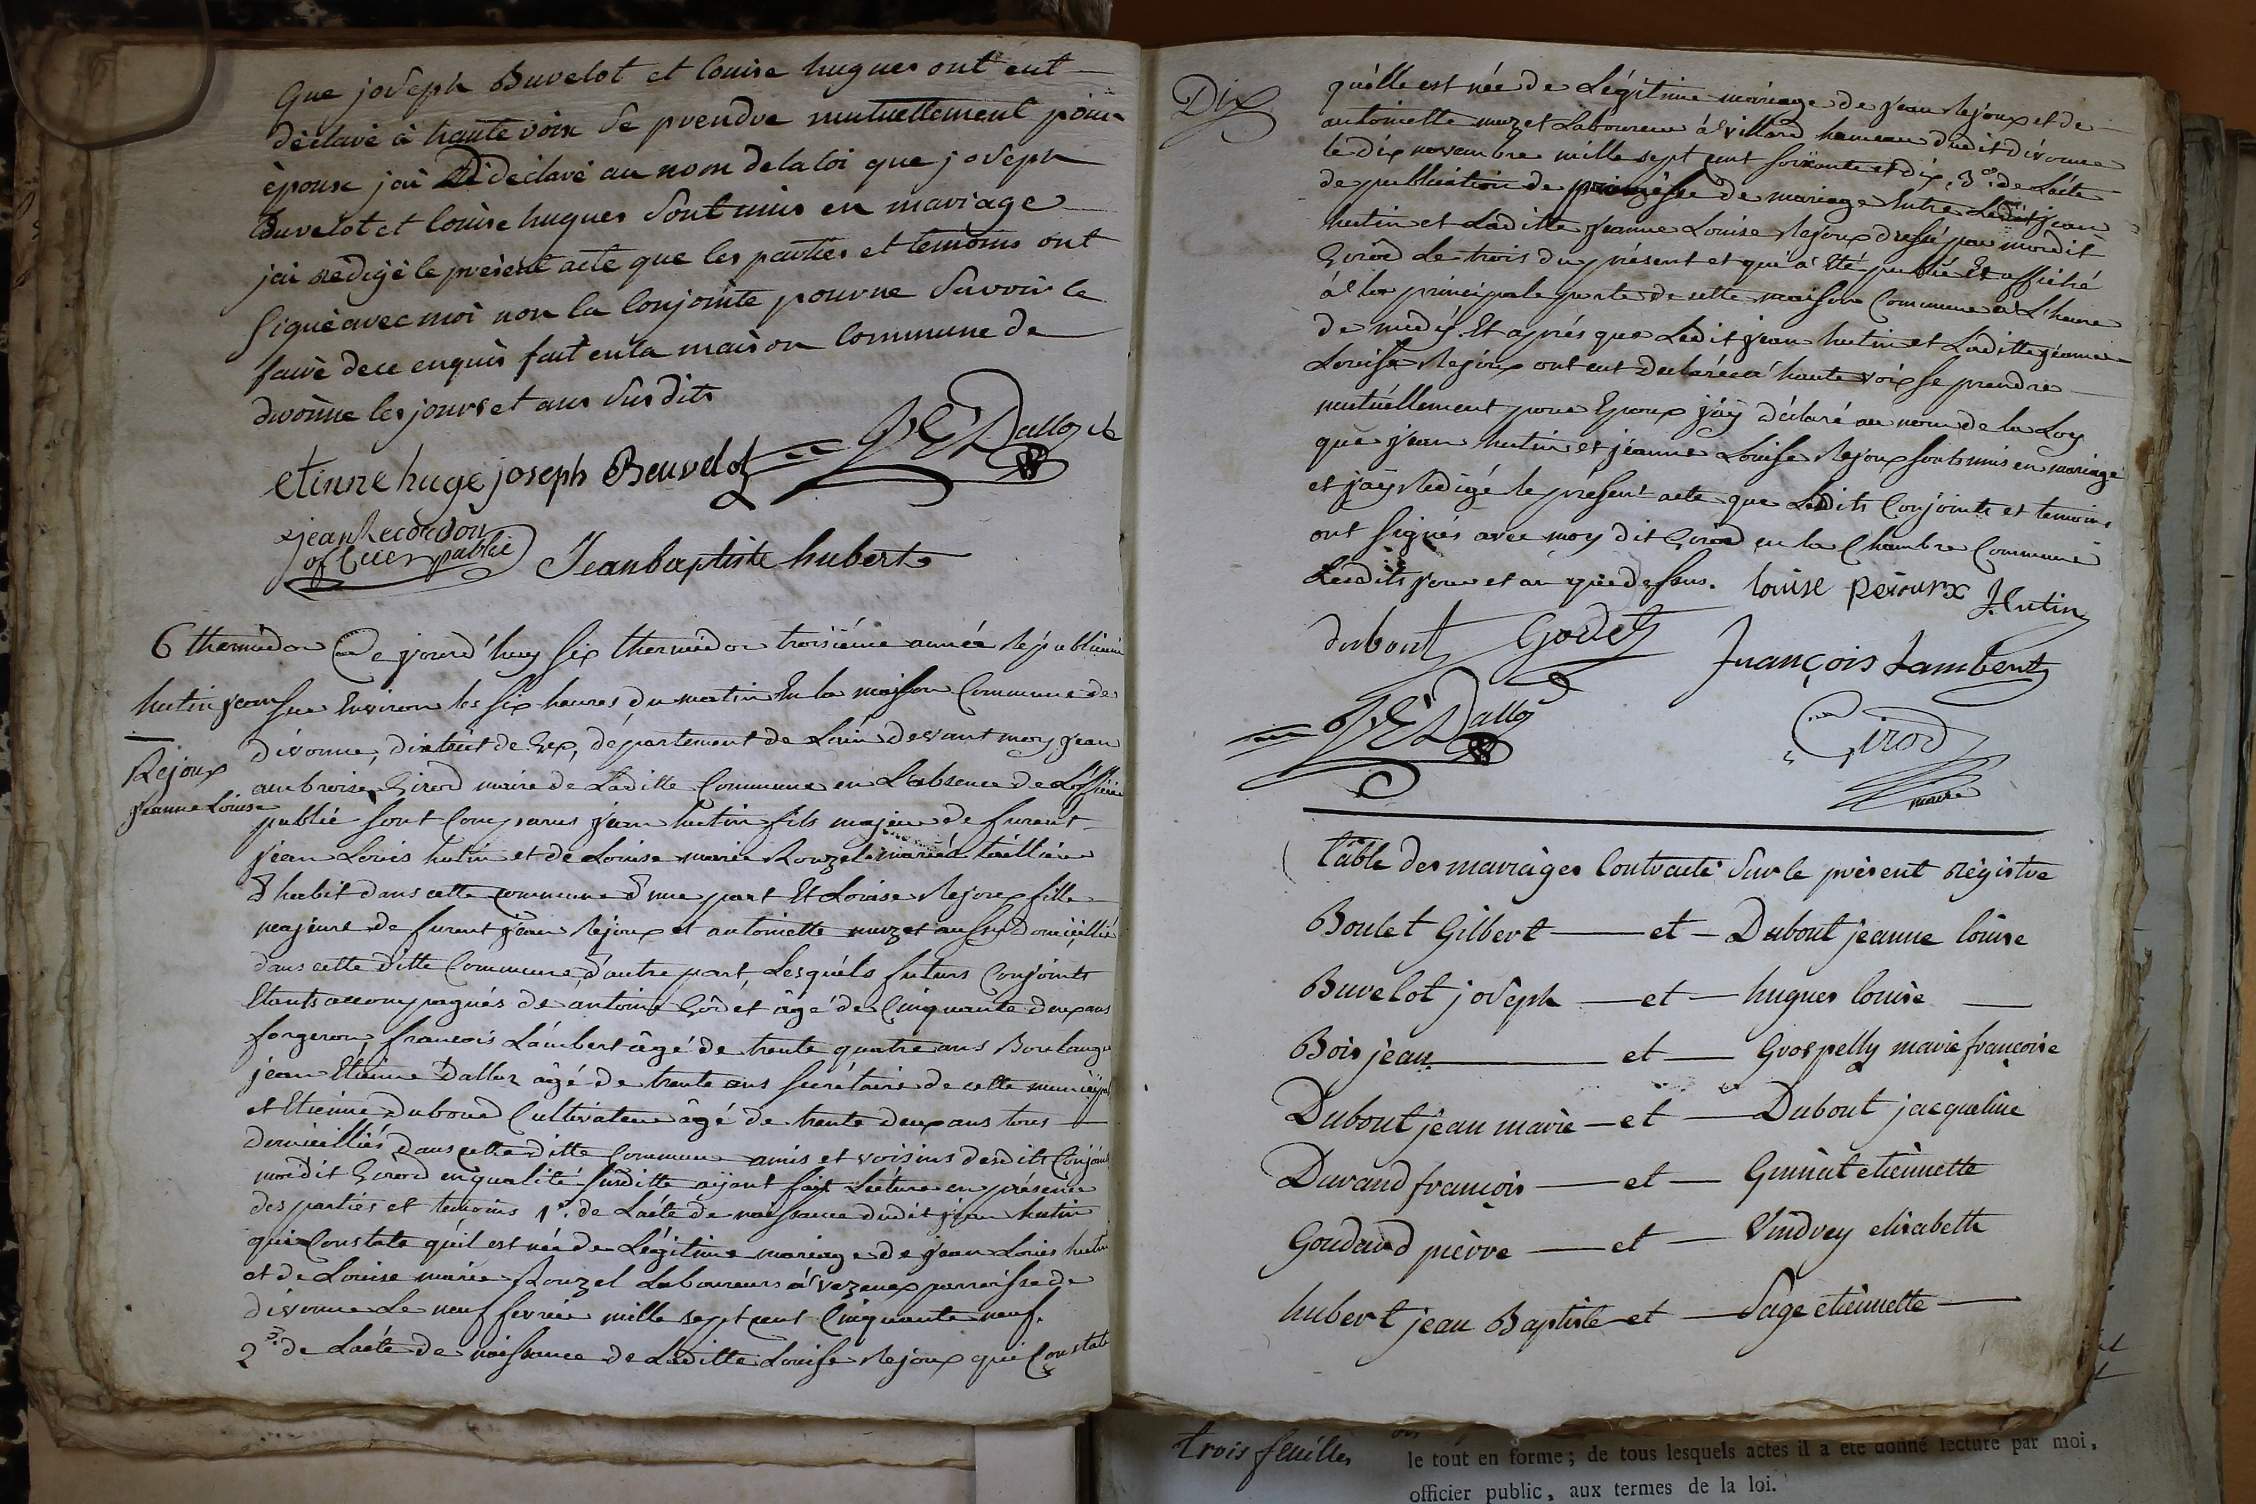 Que joseph Buvelot et louise hugues ont eut
déclaré à haute voix se prendre mutuellement pour
épouse jai declaré au nom de la loi que joseph
Buvelot et louise hugues sont unis en mariage
jai redigé le présent acte que les parties et temoins ont
signé avec moi non la conjointe pour ne savoir le
faire de ce enquis fait en la maison commune de
divonne les jours et ans susdits
etinne huge joseph Beuvelot J E Dalloz
jean Recordon
officier public
Jean baptiste hubert
6 thermidor
hutin jean
Rejoux
jeanne Louise
Ce jourd'huy six thermidor troisiéme année Républicaine
sur Environ les six heures du matin En la maison Commune de
divonne, district de Gex, département de L'ain devant moy jean
ambroise Girod maire de Laditte Commune en L'absence de L'officier
public sont Comparus jean hutin fils majeur de furent
jean Louis hutin et de Louise marie Rouzel mariés tailleur
d'habit dans cette commune d'une part Et Louise Rejoux fille
majeure de furent jean Rejoux et antoinette muzet aussy Domicilliée
dans cette ditte Commune, d'autre part, Lesquéls futurs Conjoints
Etants accompagnés de antoine Godet âgé de Cinquante deux ans
forgeron, françois Lámbert âgé de trente quatre ans Boulanger
jean Etienne Dalloz âgé de trente ans secrétaire de cette municipal
et Etienne Duboud Cultivateur âgé de trente deux ans tous
domicilliés dans cette ditte Commune amis et voisins desdits Conjoints
moidit Girod en qualité susditte ayant fait Lécture en présence
des parties et temoins 1°. de L'acte de naissance dudit jean hutin
qui Constate qu'il est née de Légitime mariage de jean Louis hutin
et de Louise marie Rouzel Laboureurs à vezenex parroisse de
divonne Le neuf fevrier mille sept cent Cinquante neuf.
2°. de L'acte de naissance de Laditte Louise Rejoux qui Constate
Dix
qu'élle est née de Légitime mariage de jean Rejoux et de
antoinette muzet Laboureur à villard hameau dudit divonne
le dix novembre mille sept cent soixante et dix, 3°. de L'acte
de publication de promèsse de mariage Entre Ledit jean
hutin et Laditte jeanne Louise Rejoux dressé par moidit
Girod Le trois du présent et qui a Eté publié Et affiché
à la principale porte de cette maison Commune à L'heure
de midy. Et aprés que Ledit jean hutin et Laditte jeanne
Louise Rejoux ont eut declaré à haute voix se prendre
mutuéllement pour Epoux j'ay déclaré au nom de la Loy
que jean hutin et jeanne Louise Rejoux sont unis en mariage
et j'ay Redigé le présent acte que Lesdits Conjoints et temoins
ont signés avec moy dit Girod en la Chambre Commune
Lesdits jour et an que dessus. louise Rejoux J. hutin
dubout Godet François Lambert
J E Dalloz
Girod
maire
table des mariages Contracté sur le présent régistre
Boulet Gilbert — et — Dubout jeanne louise
Buvelot joseph — et — hugues louise —
Bois jean — et — Grospelly marie françoise
Dubout jean marie — et — Dubout jacqueline
Durand françois — et — Guinat etiennette
Goudard pierre — et — Vindrey elisabeth
hubert jean Baptiste et — Sage etiennette —
trois feuilles
le tout en forme ; de tous lesquels actes il a été donné lecture par moi,
officier public, aux termes de la loi.